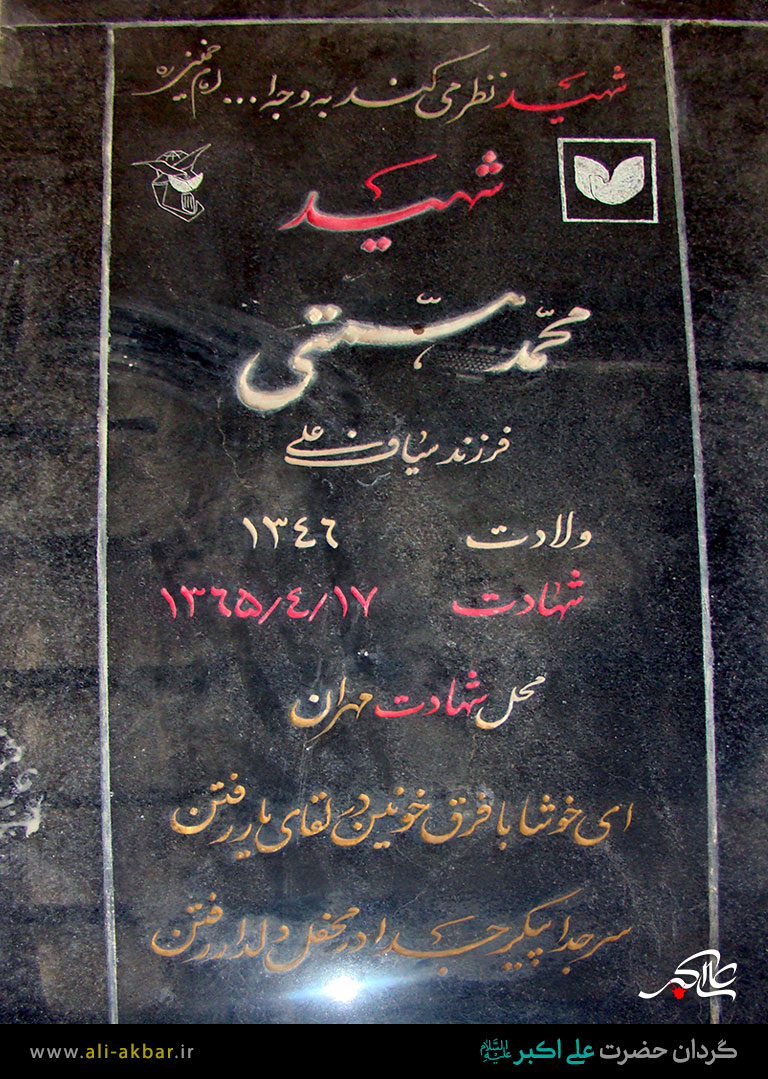 شهید نظر می کند به وجه ا... امام خمینی ره
شهید
محمّد هستی
فرزند سیاف علی
ولادت ۱۳۴۶
شهادت ۱۳۶۵/۴/۱۷
محل شهادت مهران
ای خوشا با فرق خونین در لقای یار رفتن
سر جدا پیکر جدا در محفل دلدار رفتن
علی اکبر
گردان حضرت علی اکبر علیه السلام
www.ali-akbar.ir